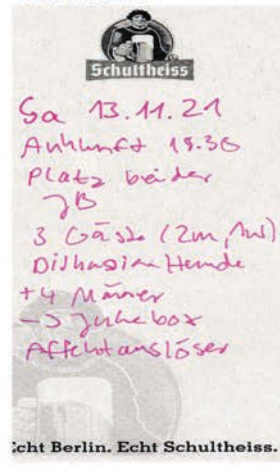 Schultheiss
Sa 13.11.21
Ankunft 18.30
Platz bei der
JB
3 Gäste (2m, 1w)
Diskussion Hunde
+4 Männer
-> Jukebox
Affektauslöser
Echt Berlin. Echt Schultheiss.